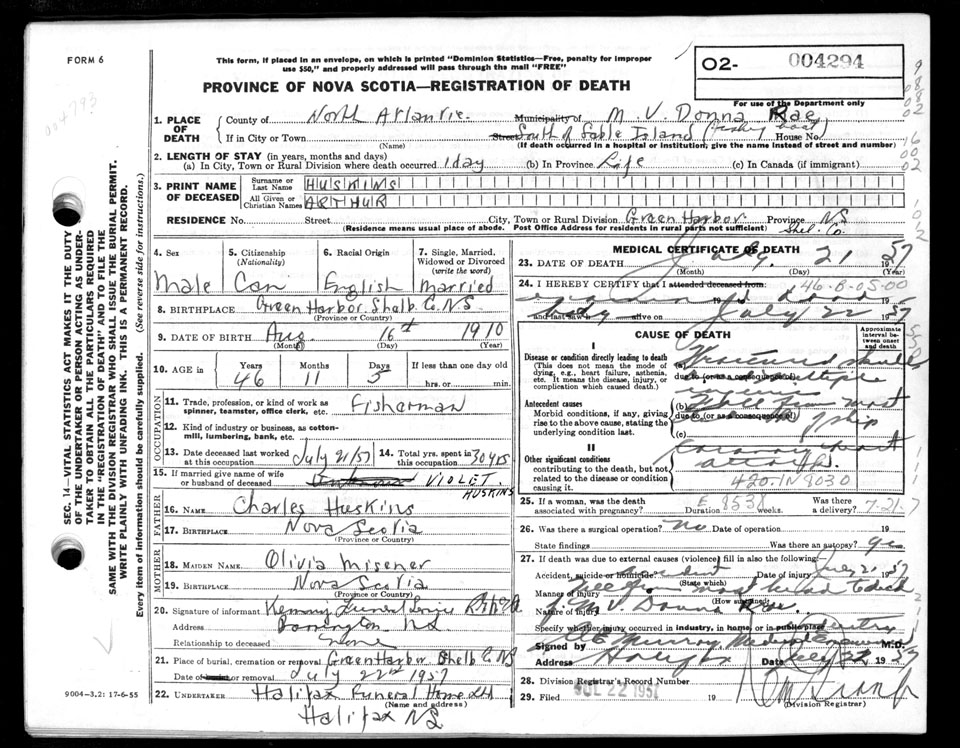 FORM 6
This form, if placed in an envelope, on which is printed "Dominion Statistics—Free, penalty for improper
use $50," and properly addressed will pass through the mail "FREE"
PROVINCE OF NOVA SCOTIA—REGISTRATION OF DEATH
O2- 004294
For use of the Department only
004793
1. PLACE OF DEATH
County of North Atlantic Municipality of M. V. Donna Rae
If in City or Town Street South of Sable Island (fishing boat) House No.
(Name) (If death occurred in a hospital or institution, give the name instead of street and number)
2. LENGTH OF STAY (in years, months and days)
(a) In City, Town or Rural Division where death occurred 1 day (b) In Province Life (c) In Canada (if immigrant)
3. PRINT NAME OF DECEASED
Surname or Last Name HUSKINS
All Given or Christian Names ARTHUR
RESIDENCE No. Street City, Town or Rural Division Green Harbor Province NS
(Residence means usual place of abode. Post Office Address for residents in rural parts not sufficient) Shel. Co.
4. Sex 5. Citizenship (Nationality) 6. Racial Origin 7. Single, Married, Widowed or Divorced (write the word)
Male Can English Married
8. BIRTHPLACE Green Harbor Shelb. Co. NS
(Province or Country)
9. DATE OF BIRTH Aug. 16th 1910
(Month) (Day) (Year)
10. AGE in Years Months Days If less than one day old
46 11 5 hrs. or min.
OCCUPATION
11. Trade, profession, or kind of work as spinner, teamster, office clerk, etc. Fisherman
12. Kind of industry or business, as cotton-mill, lumbering, bank, etc.
13. Date deceased last worked at this occupation July 21/57 14. Total yrs. spent in this occupation 30 yrs
15. If married give name of wife or husband of deceased Unknown VIOLET HUSKINS
FATHER
16. NAME Charles Huskins
17. BIRTHPLACE Nova Scotia
(Province or Country)
MOTHER
18. MAIDEN NAME Olivia Misener
19. BIRTHPLACE Nova Scotia
(Province or Country)
20. Signature of informant
Address NS
Relationship to deceased none
21. Place of burial, cremation or removal Green Harbor Shelb Co. NS
Date of burial or removal July 22nd 1957
22. UNDERTAKER Halifax Funeral Home Ltd
(Name and address)
Halifax NS
9004-3.2: 17-6-55
SEC. 14—VITAL STATISTICS ACT MAKES IT THE DUTY
OF THE UNDERTAKER OR PERSON ACTING AS UNDER-
TAKER TO OBTAIN ALL THE PARTICULARS REQUIRED
IN THE "REGISTRATION OF DEATH" AND TO FILE THE
SAME WITH THE DIVISION REGISTRAR WHO SHALL ISSUE THE BURIAL PERMIT.
WRITE PLAINLY WITH UNFADING INK. THIS IS A PERMANENT RECORD.
Every item of information should be carefully supplied. (See reverse side for instructions.)
MEDICAL CERTIFICATE OF DEATH
23. DATE OF DEATH July 21 1957
(Month) (Day) (Year)
24. I HEREBY CERTIFY that I attended deceased from: 46-8-05-00
and last saw h alive on July 22 1957
body
CAUSE OF DEATH
Approximate interval between onset and death
I
Disease or condition directly leading to death
(This does not mean the mode of dying, e.g., heart failure, asthenia, etc. It means the disease, injury, or complication which caused death.)
(a) Fractured skull
due to (or as a consequence of)
multiple
Antecedent causes
Morbid conditions, if any, giving rise to the above cause, stating the underlying condition last.
(b) Fell from mast
due to (or as a consequence of)
(c) of ship
II
Other significant conditions contributing to the death, but not related to the disease or condition causing it.
Coronary heart attack
420.1 N 8030
25. If a woman, was the death associated with pregnancy? Duration Was there a delivery?
E 853 7-21-7
26. Was there a surgical operation? no Date of operation 19
State findings Was there an autopsy? yes
27. If death was due to external causes (violence) fill in also the following:
Accident, suicide or homicide? Accident Date of injury July 21 1957
(State which)
Manner of injury Fell from mast head to deck
(How sustained)
Nature of injury M V Donna Rae
Specify whether injury occurred in industry, in home, or in public place Industry
Signed by Murray M.D.
Address Halifax Date July 22 1957
28. Division Registrar's Record Number
29. Filed JUL 22 1957 19
(Division Registrar)